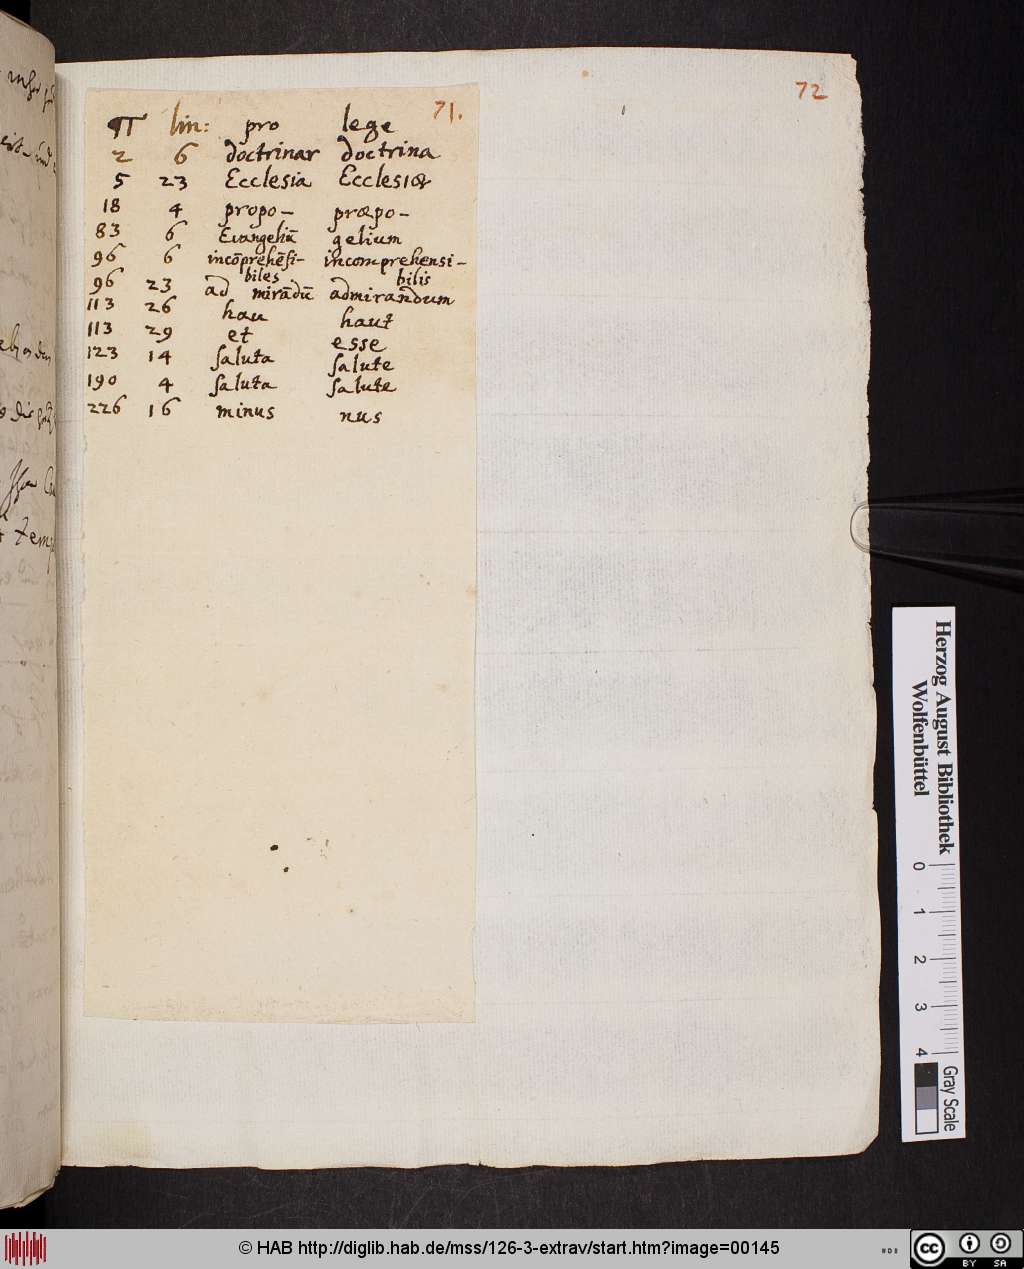 71.
72
π lin: pro lege
2 6 doctrinar doctrina
5 23 Ecclesia Ecclesiæ
18 4 propo- præpo-
83 6 Evangeliū gelium
96 6 incōprehēsi- incomprehensi-
biles bilis
96 23 ad mirādū admirandum
113 26 hau haut
113 29 et esse
123 14 saluta salute
190 4 saluta salute
226 16 minus nus
Herzog August Bibliothek
Wolfenbüttel
0 1 2 3 4
Gray Scale
© HAB http://diglib.hab.de/mss/126-3-extrav/start.htm?image=00145
cc BY SA